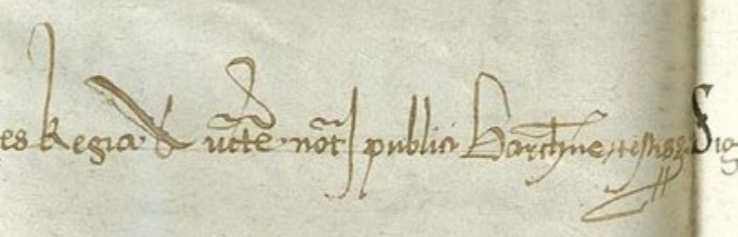 es Regia auctte not publici Barchne, testis Sig